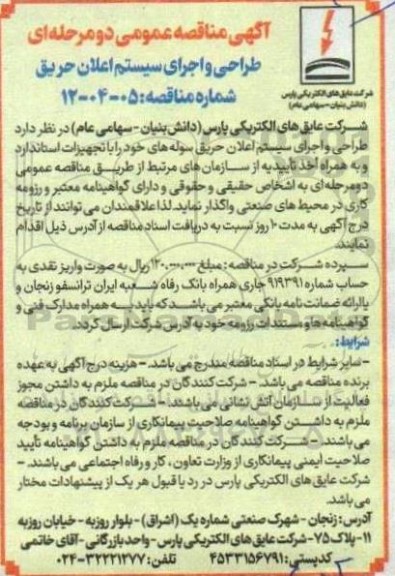 آگهی مناقصه عمومی دو مرحله‌ای
طراحی و اجرای سیستم اعلان حریق
شماره مناقصه: ۰۵-۰۴-۱۲
شرکت عایق های الکتریکی پارس
(دانش بنیان - سهامی عام)
شرکت عایق های الکتریکی پارس (دانش بنیان - سهامی عام) در نظر دارد
طراحی و اجرای سیستم اعلان حریق سوله های خود را با تجهیزات استاندارد
و به همراه أخذ تأییدیه از سازمان های مرتبط از طریق مناقصه عمومی
دو مرحله ای به اشخاص حقیقی و حقوقی و دارای گواهینامه معتبر و رزومه
کاری در محیط های صنعتی واگذار نماید. لذا علاقمندان می توانند از تاریخ
درج آگهی به مدت ۱۰ روز نسبت به دریافت اسناد مناقصه از آدرس ذیل اقدام
نمایند.
سپرده شرکت در مناقصه: مبلغ ۱۲۰,۰۰۰,۰۰۰ ریال به صورت واریز نقدی به
حساب شماره ۹۱۹۳۹۱ جاری همراه بانک رفاه شعبه ایران ترانسفو زنجان و
یا ارائه ضمانت نامه بانکی معتبر می باشد که باید به همراه مدارک فنی و
گواهینامه ها و مستندات رزومه خود به آدرس شرکت ارسال گردد.
شرایط:
- سایر شرایط در اسناد مناقصه مندرج می باشد. - هزینه درج آگهی به عهده
برنده مناقصه می باشد. - شرکت کنندگان در مناقصه ملزم به داشتن مجوز
فعالیت از سازمان آتش نشانی می باشند. - شرکت کنندگان در مناقصه
ملزم به داشتن گواهینامه صلاحیت پیمانکاری از سازمان برنامه و بودجه
می باشند. - شرکت کنندگان در مناقصه ملزم به داشتن گواهینامه تأیید
صلاحیت ایمنی پیمانکاری از وزارت تعاون، کار و رفاه اجتماعی می باشند. -
شرکت عایق های الکتریکی پارس در رد یا قبول هر یک از پیشنهادات مختار
می باشد.
آدرس: زنجان - شهرک صنعتی شماره یک (اشراق) - بلوار روزبه - خیابان روزبه
۱۱ - پلاک ۷۵ - شرکت عایق های الکتریکی پارس - واحد بازرگانی - آقای خاتمی
کدپستی: ۴۵۳۳۱۵۶۷۹۱ تلفن: ۳۲۲۲۱۲۷۷-۰۲۴